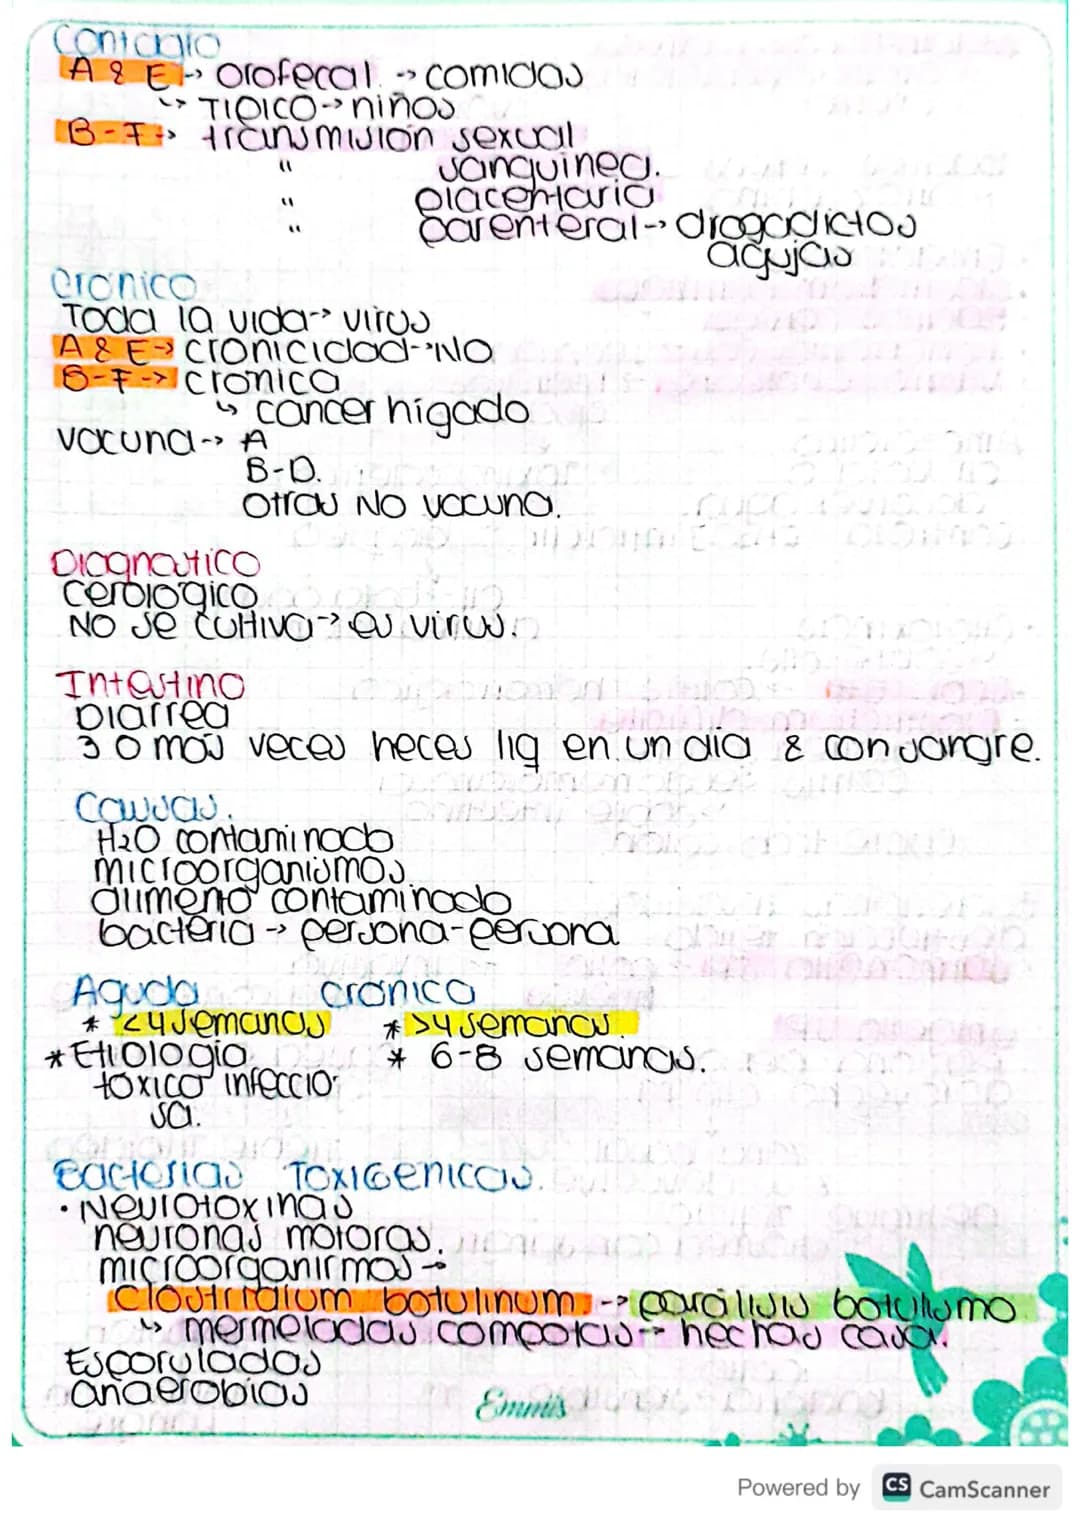 Contagio
A & E → orofecal → comidas
↳ Tipico → niños
B-F → transmisión sexual
" sanguinea.
" placentaria
" parenteral → drogadictos
agujas
Crónico
Toda la vida → virus
A & E → cronicidad → No
B-F → crónica
↳ cáncer hígado
vacuna → A
B-D.
otras NO vacuna.
Diagnostico
cerologico
NO se cultiva → es virus.
Intestino
Diarrea
3 o más veces heces liq en un día & con sangre.
Causas.
H2O contaminado
microorganismos
alimento contaminado
bacteria → persona-persona
Aguda crónica
* <4 semanas * >4 semanas
* Etiología * 6-8 semanas.
tóxico infeccio-
sa.
Bacterias Toxigenicas.
• Neurotoxinas
neuronas motoras.
microorganirmos →
Clostridium botulinum → parálisis botulismo
↳ mermeladas compotas → hechas casa.
Esporuladas
anaerobias
Emmis
Powered by CS CamScanner